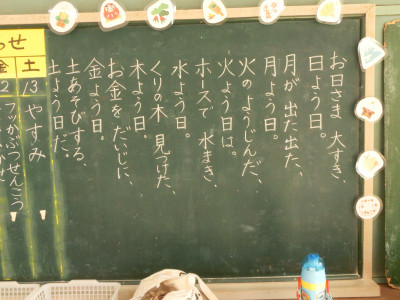 お日さま 大すき、
日よう日。
月が 出た出た、
月よう日。
火のようじんだ、
火よう日は。
ホースで 水まき、
水よう日。
くりの木 見つけた、
木よう日。
お金を だいじに、
金よう日。
土あそびする、
土よう日だ。
らせ
土
13
やすみ
金
フッかぶつせんこう